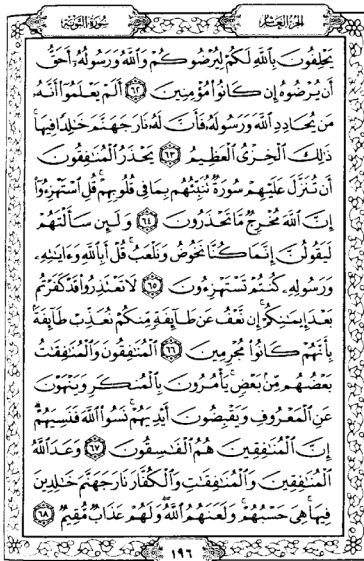 الجزء العاشر
سورة التوبة
يَحْلِفُونَ بِٱللَّهِ لَكُمْ لِيُرْضُوكُمْ وَٱللَّهُ وَرَسُولُهُۥٓ أَحَقُّ
أَن يُرْضُوهُ إِن كَانُوا۟ مُؤْمِنِينَ ٦٢ أَلَمْ يَعْلَمُوٓا۟ أَنَّهُۥ
مَن يُحَادِدِ ٱللَّهَ وَرَسُولَهُۥ فَأَنَّ لَهُۥ نَارَ جَهَنَّمَ خَٰلِدًا فِيهَا
ذَٰلِكَ ٱلْخِزْىُ ٱلْعَظِيمُ ٦٣ يَحْذَرُ ٱلْمُنَٰفِقُونَ
أَن تُنَزَّلَ عَلَيْهِمْ سُورَةٌ تُنَبِّئُهُم بِمَا فِى قُلُوبِهِمْ قُلِ ٱسْتَهْزِءُوٓا۟
إِنَّ ٱللَّهَ مُخْرِجٌ مَّا تَحْذَرُونَ ٦٤ وَلَئِن سَأَلْتَهُمْ
لَيَقُولُنَّ إِنَّمَا كُنَّا نَخُوضُ وَنَلْعَبُ قُلْ أَبِٱللَّهِ وَءَايَٰتِهِۦ
وَرَسُولِهِۦ كُنتُمْ تَسْتَهْزِءُونَ ٦٥ لَا تَعْتَذِرُوا۟ قَدْ كَفَرْتُم
بَعْدَ إِيمَٰنِكُمْ إِن نَّعْفُ عَن طَآئِفَةٍ مِّنكُمْ نُعَذِّبْ طَآئِفَةًۢ
بِأَنَّهُمْ كَانُوا۟ مُجْرِمِينَ ٦٦ ٱلْمُنَٰفِقُونَ وَٱلْمُنَٰفِقَٰتُ
بَعْضُهُم مِّنۢ بَعْضٍ يَأْمُرُونَ بِٱلْمُنكَرِ وَيَنْهَوْنَ
عَنِ ٱلْمَعْرُوفِ وَيَقْبِضُونَ أَيْدِيَهُمْ نَسُوا۟ ٱللَّهَ فَنَسِيَهُمْ
إِنَّ ٱلْمُنَٰفِقِينَ هُمُ ٱلْفَٰسِقُونَ ٦٧ وَعَدَ ٱللَّهُ
ٱلْمُنَٰفِقِينَ وَٱلْمُنَٰفِقَٰتِ وَٱلْكُفَّارَ نَارَ جَهَنَّمَ خَٰلِدِينَ
فِيهَا هِىَ حَسْبُهُمْ وَلَعَنَهُمُ ٱللَّهُ وَلَهُمْ عَذَابٌ مُّقِيمٌ ٦٨
١٩٦